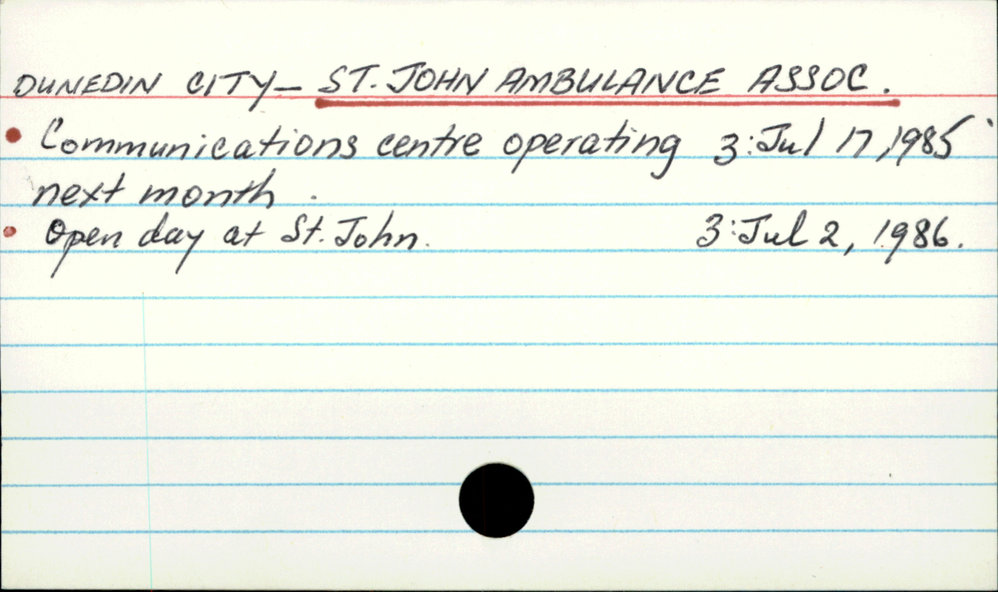 DUNEDIN CITY— ST. JOHN AMBULANCE ASSOC.
• Communications centre operating 3:Jul 17, 1985
next month.
• Open day at St. John. 3:Jul 2, 1986.